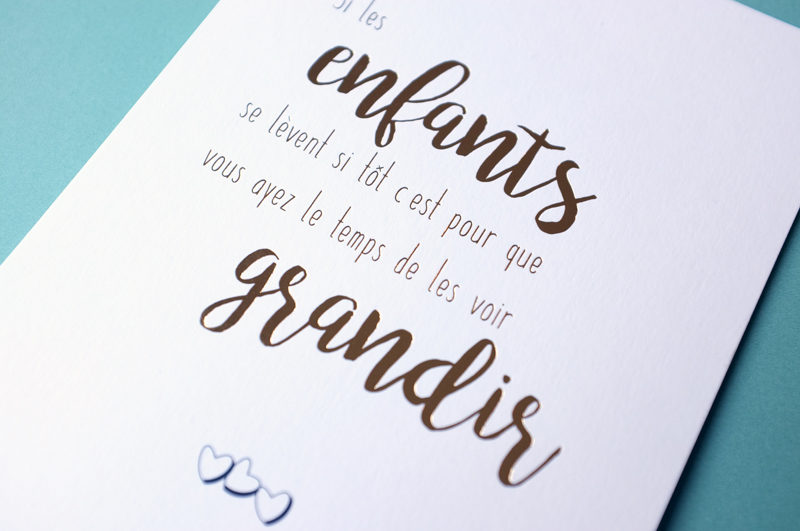 Si les
enfants
se lèvent si tôt c'est pour que
vous ayez le temps de les voir
grandir